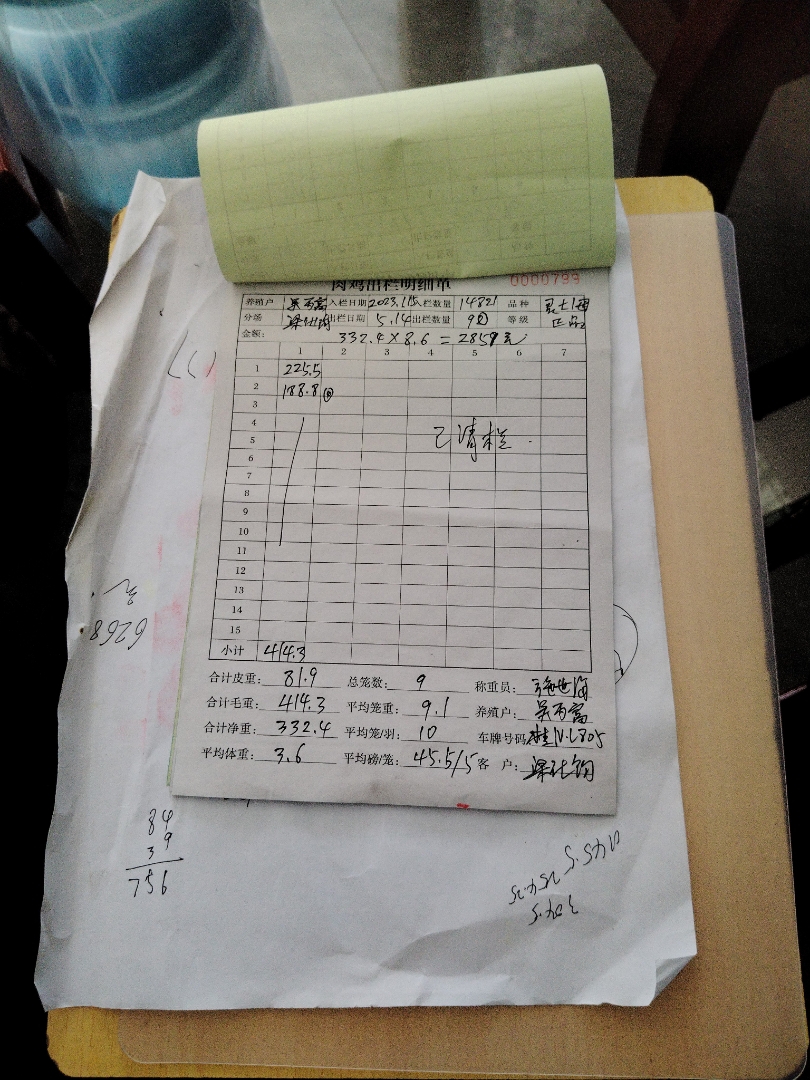 肉鸡出栏明细单 0000733
养殖户 吴丙富 入栏日期 2023.1.15 入栏数量 14821 品种
分场 出栏日期 5.14 出栏数量 90 等级 正品
金额: 332.4×8.6=2859元
1 2 3 4 5 6 7
1 225.5
2 188.8
3
4 已清栏.
5
6
7
8
9
10
11
12
13
14
15
小计 414.3
合计皮重: 81.9 总笼数: 9 称重员:
合计毛重: 414.3 平均笼重: 9.1 养殖户: 吴丙富
合计净重: 332.4 平均笼/羽: 10 车牌号码:
平均体重: 3.6 平均磅/笼: 45.5/5 客户:
6268
84
39
756